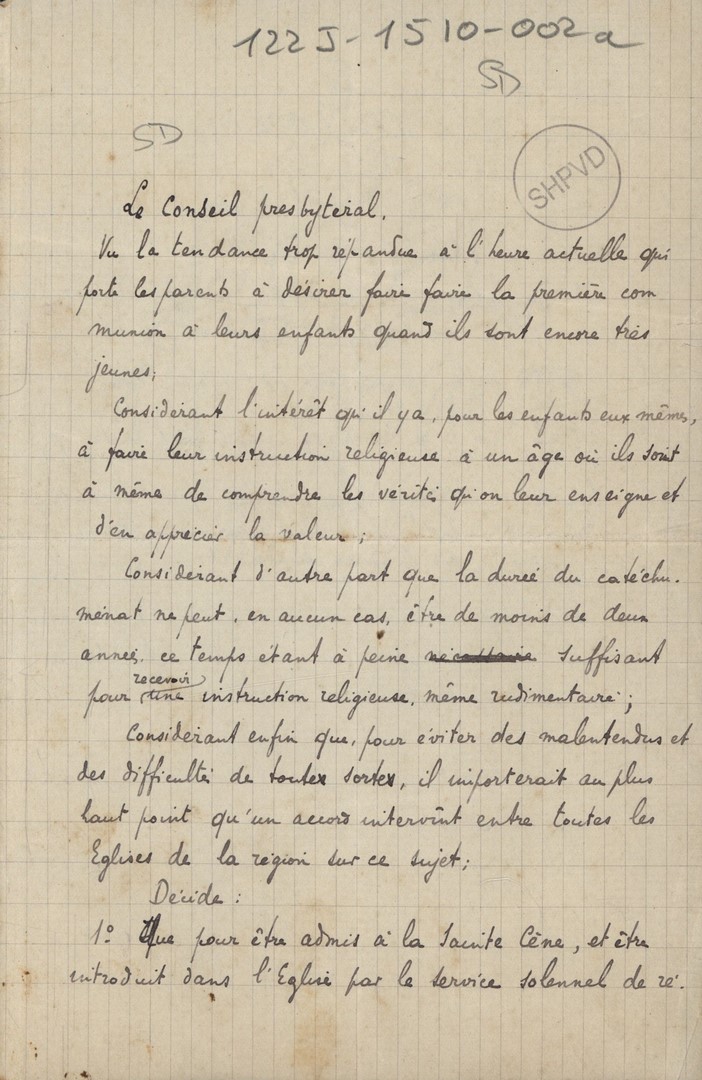 122J-1510-002a
SD
SD
SHPVD
Le Conseil presbytéral.
Vu la tendance trop répandue à l'heure actuelle qui
porte les parents à désirer faire faire la première com
munion à leurs enfants quand ils sont encore très
jeunes;
Considérant l'intérêt qu'il y a, pour les enfants eux mêmes,
à faire leur instruction religieuse à un âge où ils soient
à même de comprendre les vérités qu'on leur enseigne et
d'en apprécier la valeur;
Considérant d'autre part que la durée du catéchu-
ménat ne peut, en aucun cas, être de moins de deux
années, ce temps étant à peine nécessaire suffisant
recevoir
pour une instruction religieuse, même rudimentaire;
Considérant enfin que, pour éviter des malentendus et
des difficultés de toutes sortes, il importerait au plus
haut point qu'un accord intervînt entre toutes les
Eglises de la région sur ce sujet;
Décide:
1º Que pour être admis à la Sainte Cène, et être
introduit dans l'Eglise par le service solennel de ré-